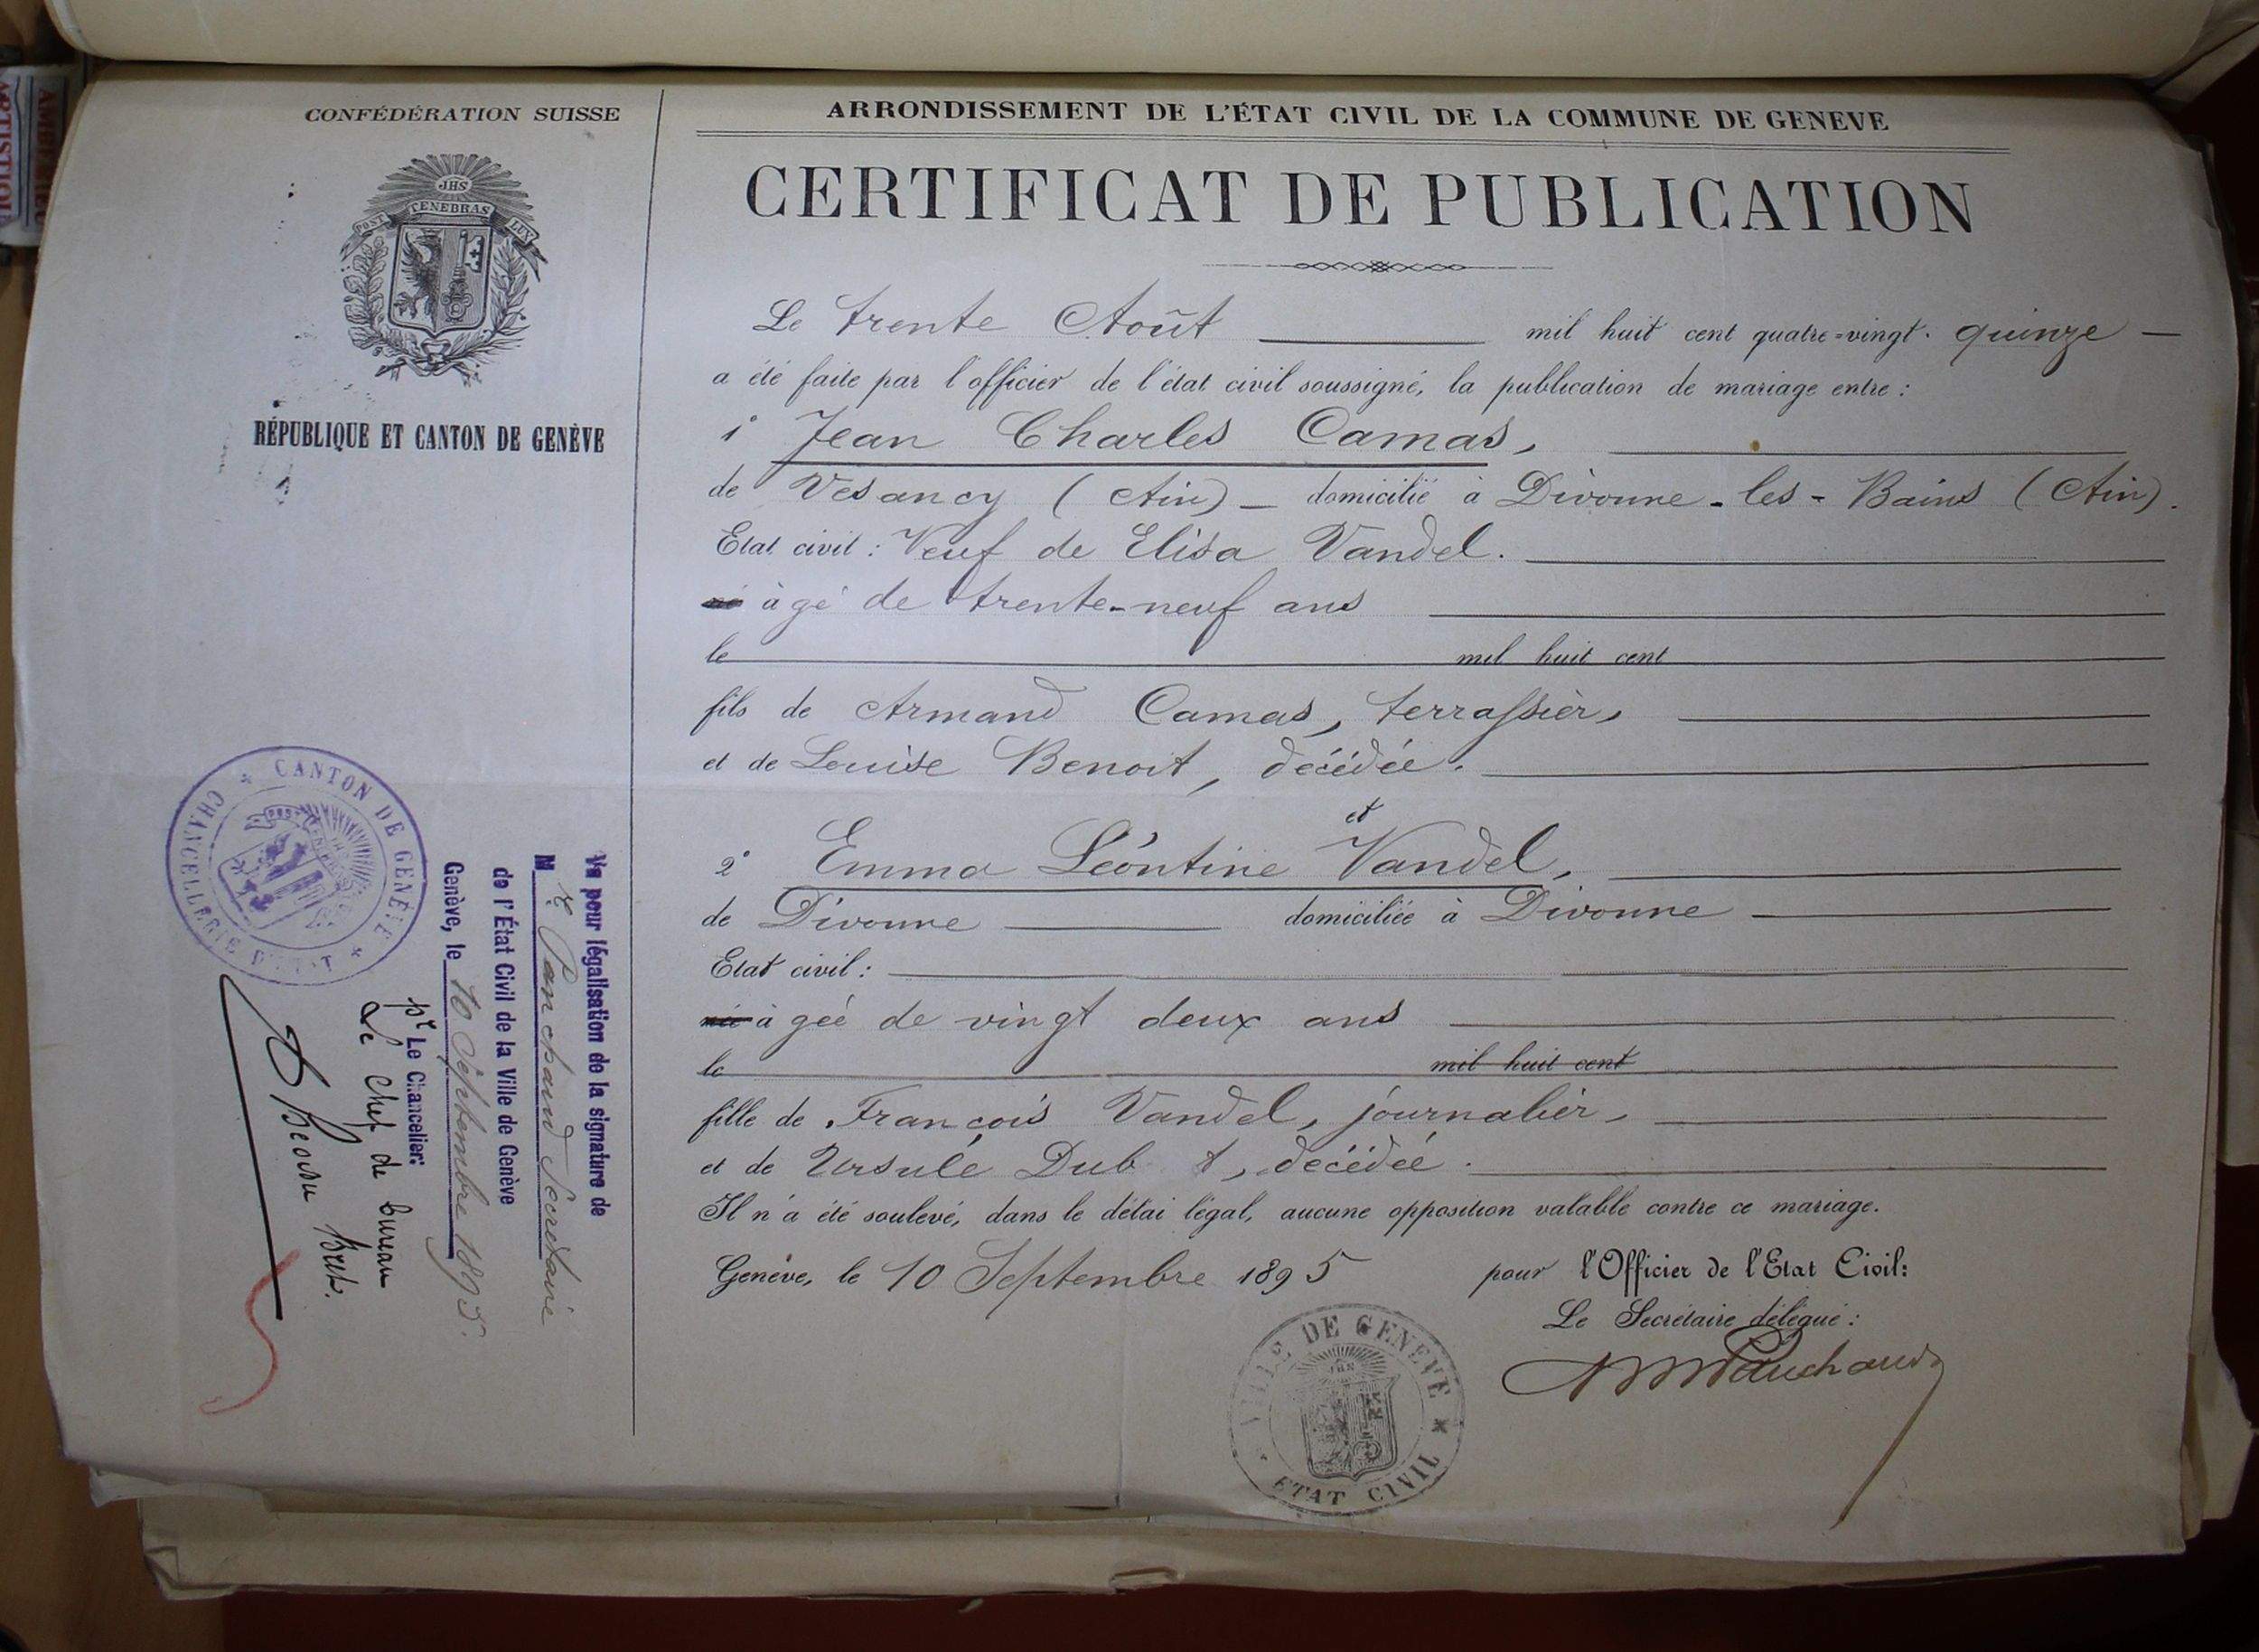 CONFÉDÉRATION SUISSE
JHS
POST TENEBRAS LUX
RÉPUBLIQUE ET CANTON DE GENÈVE
ARRONDISSEMENT DE L'ÉTAT CIVIL DE LA COMMUNE DE GENEVE
CERTIFICAT DE PUBLICATION
Le trente Août mil huit cent quatre-vingt. quinze
a été faite par l'officier de l'état civil soussigné, la publication de mariage entre :
1° Jean Charles Camas,
de Vesancy (Ain) domicilié à Divonne-les-Bains (Ain).
Etat civil : Veuf de Elisa Vandel.
né âgé de trente-neuf ans
le mil huit cent
fils de Armand Camas, terrassier,
et de Louise Benoit, décédée.
et
2° Emma Léontine Vandel,
de Divonne domiciliée à Divonne
Etat civil :
née âgée de vingt deux ans
le mil huit cent
fille de François Vandel, journalier,
et de Ursule Dub t, décédée.
Il n'a été soulevé, dans le délai légal, aucune opposition valable contre ce mariage.
Genève, le 10 Septembre 1895 pour l'Officier de l'Etat Civil:
Le Secrétaire délégué :
Pauchaud
VILLE DE GENEVE
ETAT CIVIL
Vu pour légalisation de la signature de
M E. Panchaud Secrétaire
de l'État Civil de la Ville de Genève
Genève, le 10 Septembre 1895.
pr Le Chancelier:
Le chef de bureau
CANTON DE GENÈVE
CHANCELLERIE D'ETAT